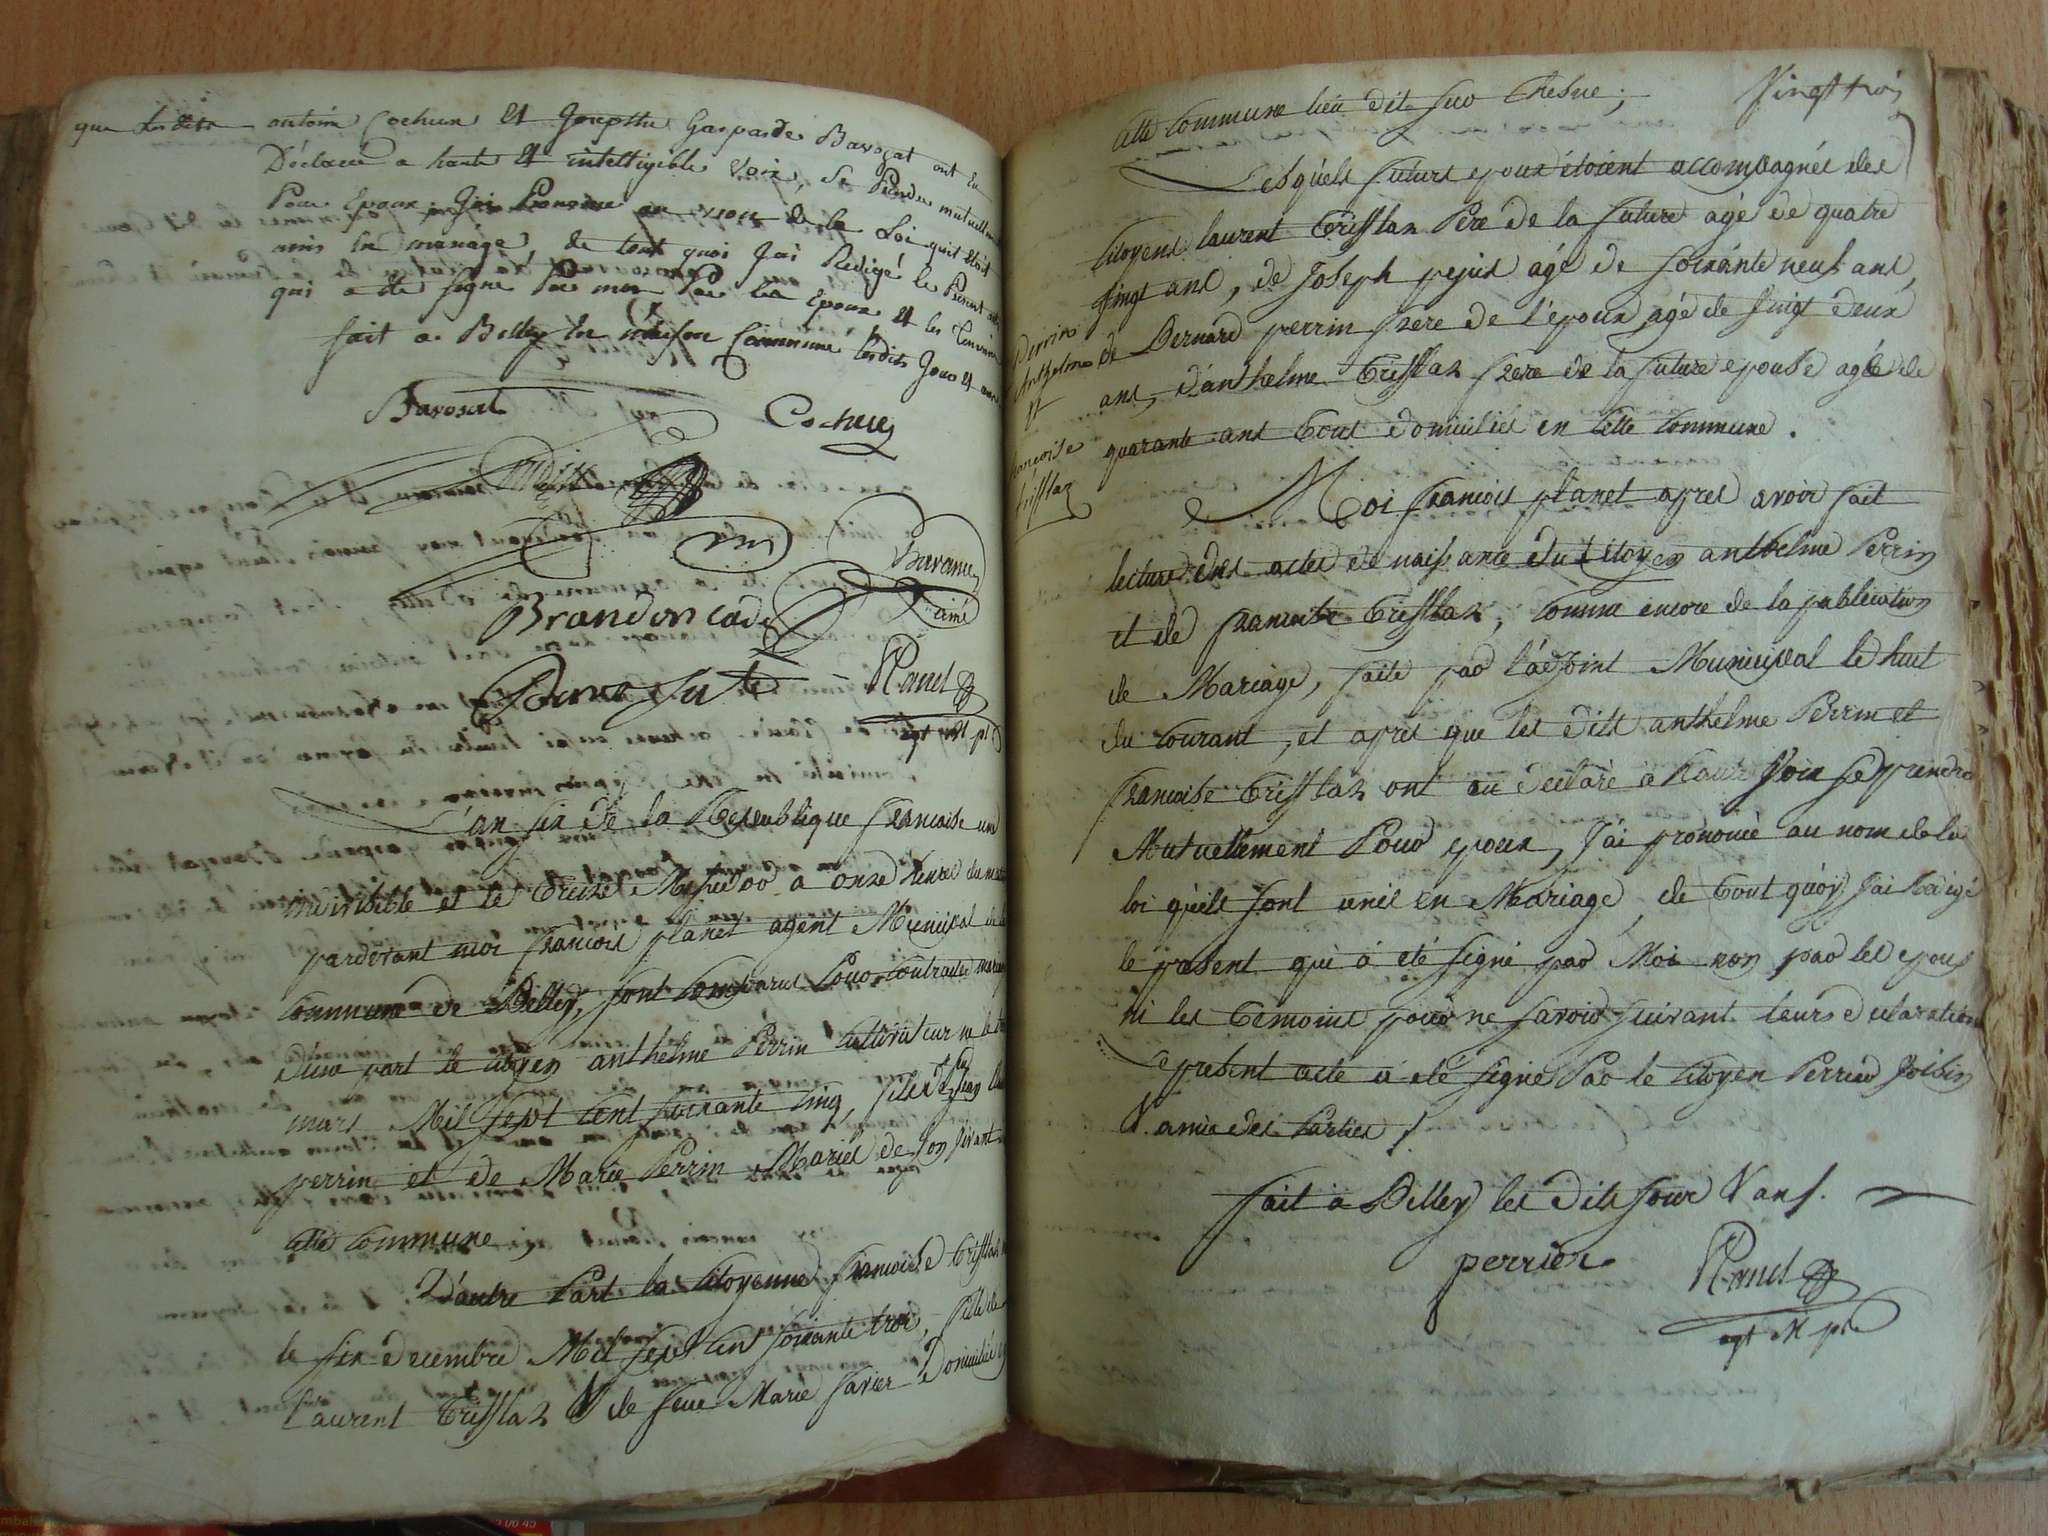 que lesdits antoine Cochun Et Josepthe Gasparde Bavozat ont Eu
Déclaré a haute Et intelligible Voix, de Prendre mutuellem
Pour Epoux, J'ai Prononcé au nom de la Loi qu'il étoit
unis En mariage, de tout quoi J'ai Redigé le Present acte
qui a été signé Par moi Par les Epoux Et les Témoins
fait a Belley En maison Commune lesdits Jour Et an
Bavosat
Cochun
Brandon cadet
ainé
Planet
agt M pl
L'an six de la Republique francoise une
indivisible et le treize Messidor a onze heures du matin
pardevant moi francois planet agent Municipal de la
commune de Belley, sont comparus Pour contracter mariage
D'une part le citoyen anthelme Perrin cultivateur né le
mars Mil sept cent soixante cinq, fils de feu
perrin et de Marie Perrin Mariés de son vivant
cette commune,
D'autre Part la Citoyenne francoise Trisslaz
le six decembre Mil sept cent soixante trois, fille de
Laurent Trisslaz & de feue Marie Savier Domiciliée
Vingt trois
cette commune lieu dit sur Chesne;
Lesquels futurs epoux étoient accompagnés des
Citoyens laurent Trisslaz Pere de la future agé de quatre
vingt ans, de Joseph pejus agé de soixante neuf ans,
de Bernard perrin frere de l'époux, agé de vingt deux
ans, d'anthelme Trisslaz frere de la future epouse agé de
quarante ans tous domiciliés en cette commune.
Perrin
Anthelme
et
francoise
trisslaz
Moi francois planet apres avoir fait
lecture des actes de naissance du Citoyen anthelme Perrin
et de francoise Trisslaz, comme encore de la publication
de Mariage, faite par l'adjoint Municipal le huit
du courant, et après que les dits anthelme Perrin et
francoise Trisslaz ont eu declaré a haute Voix se prendre
Mutuellement Pour epoux, J'ai prononcé au nom de la
loi qu'ils sont unis en Mariage, de tout quoy J'ai Redigé
le présent qui à été signé par Moi non par les epoux
ni les temoins pour ne savoir suivant leurs declaration
Le present acte a été signé Par le Citoyen Perrier Voisin
& amie des Parties /
fait a Belley les dits Jour & ans.
perrier
Planet
agt M pl